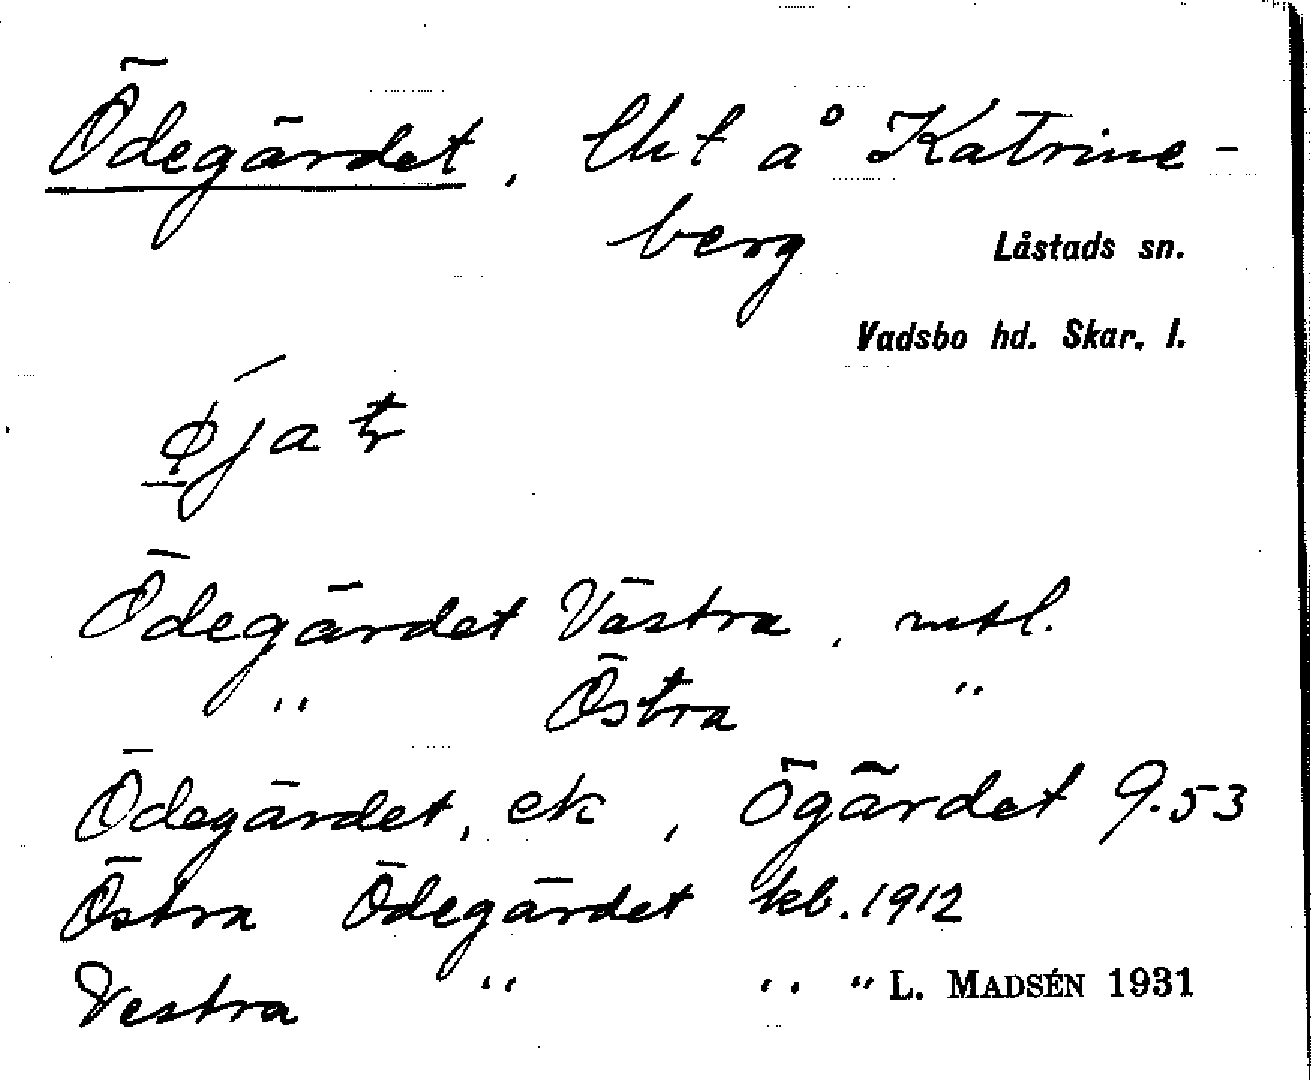 Ödegärdet, lht å Katrine-
berg
Låstads sn.
Vadsbo hd. Skar. l.
Ödegärdet Västra, mtl.
" Östra "
Ödegärdet, ek, Ögärdet 9.53
Östra Ödegärdet kb. 1912
Vestra " " "
L. MADSÉN 1931